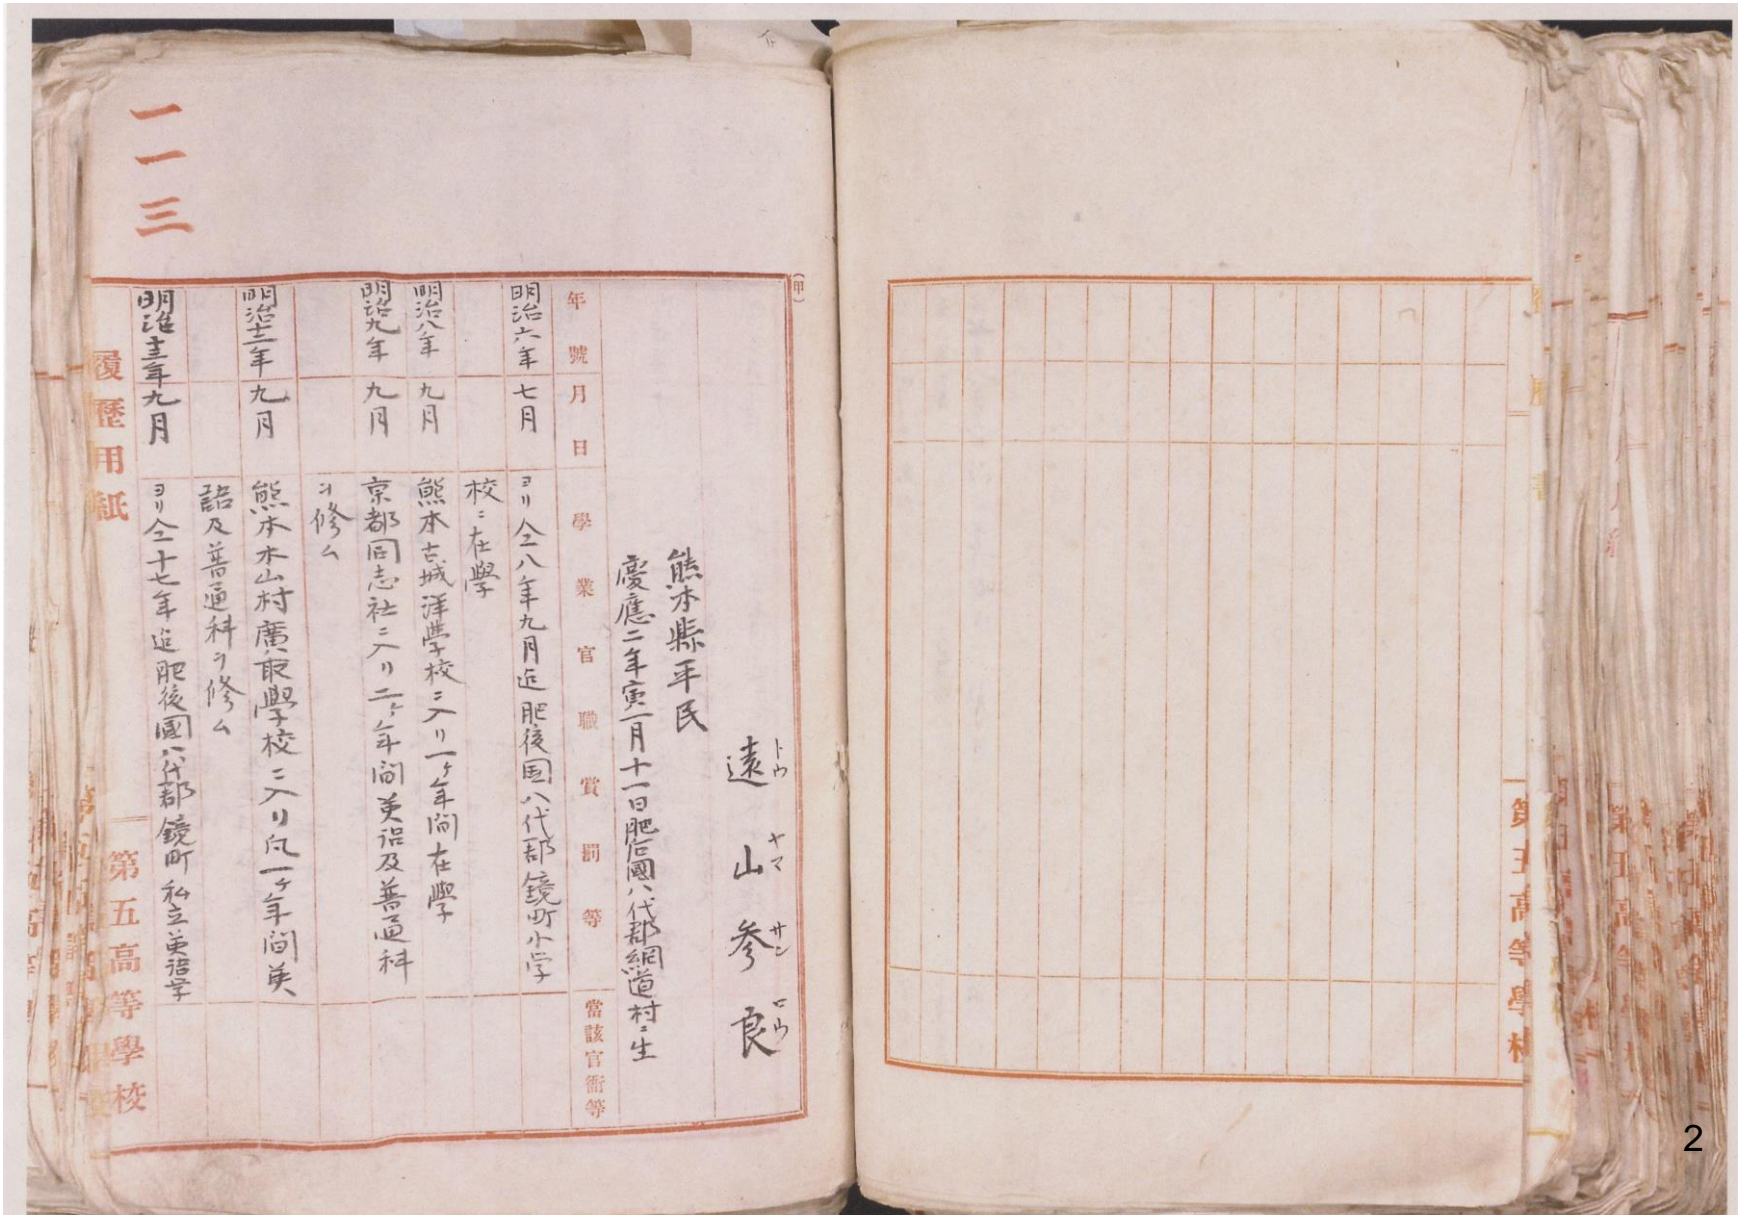 一一三
(甲)
遠山参良
トウヤマサンロウ
熊本縣平民
慶應二年寅一月十一日肥后國八代郡網道村ニ生
年號月日
學業官職賞罰等
當該官衙等
明治六年七月
ヨリ仝八年九月迠肥後国八代郡鏡町小学
校ニ在學
明治八年九月
熊本古城洋學校ニ入リ一ケ年間在學
明治九年九月
京都同志社ニ入リ二ケ年間英语及普通科
ヲ修ム
明治十二年九月
熊本木山村廣取學校ニ入リ凡一ケ年間英
語及普通科ヲ修ム
明治十三年九月
ヨリ仝十七年迠肥後國八代郡鏡町私立英语学
履歷用紙
第五高等學校
第五高等學校
2